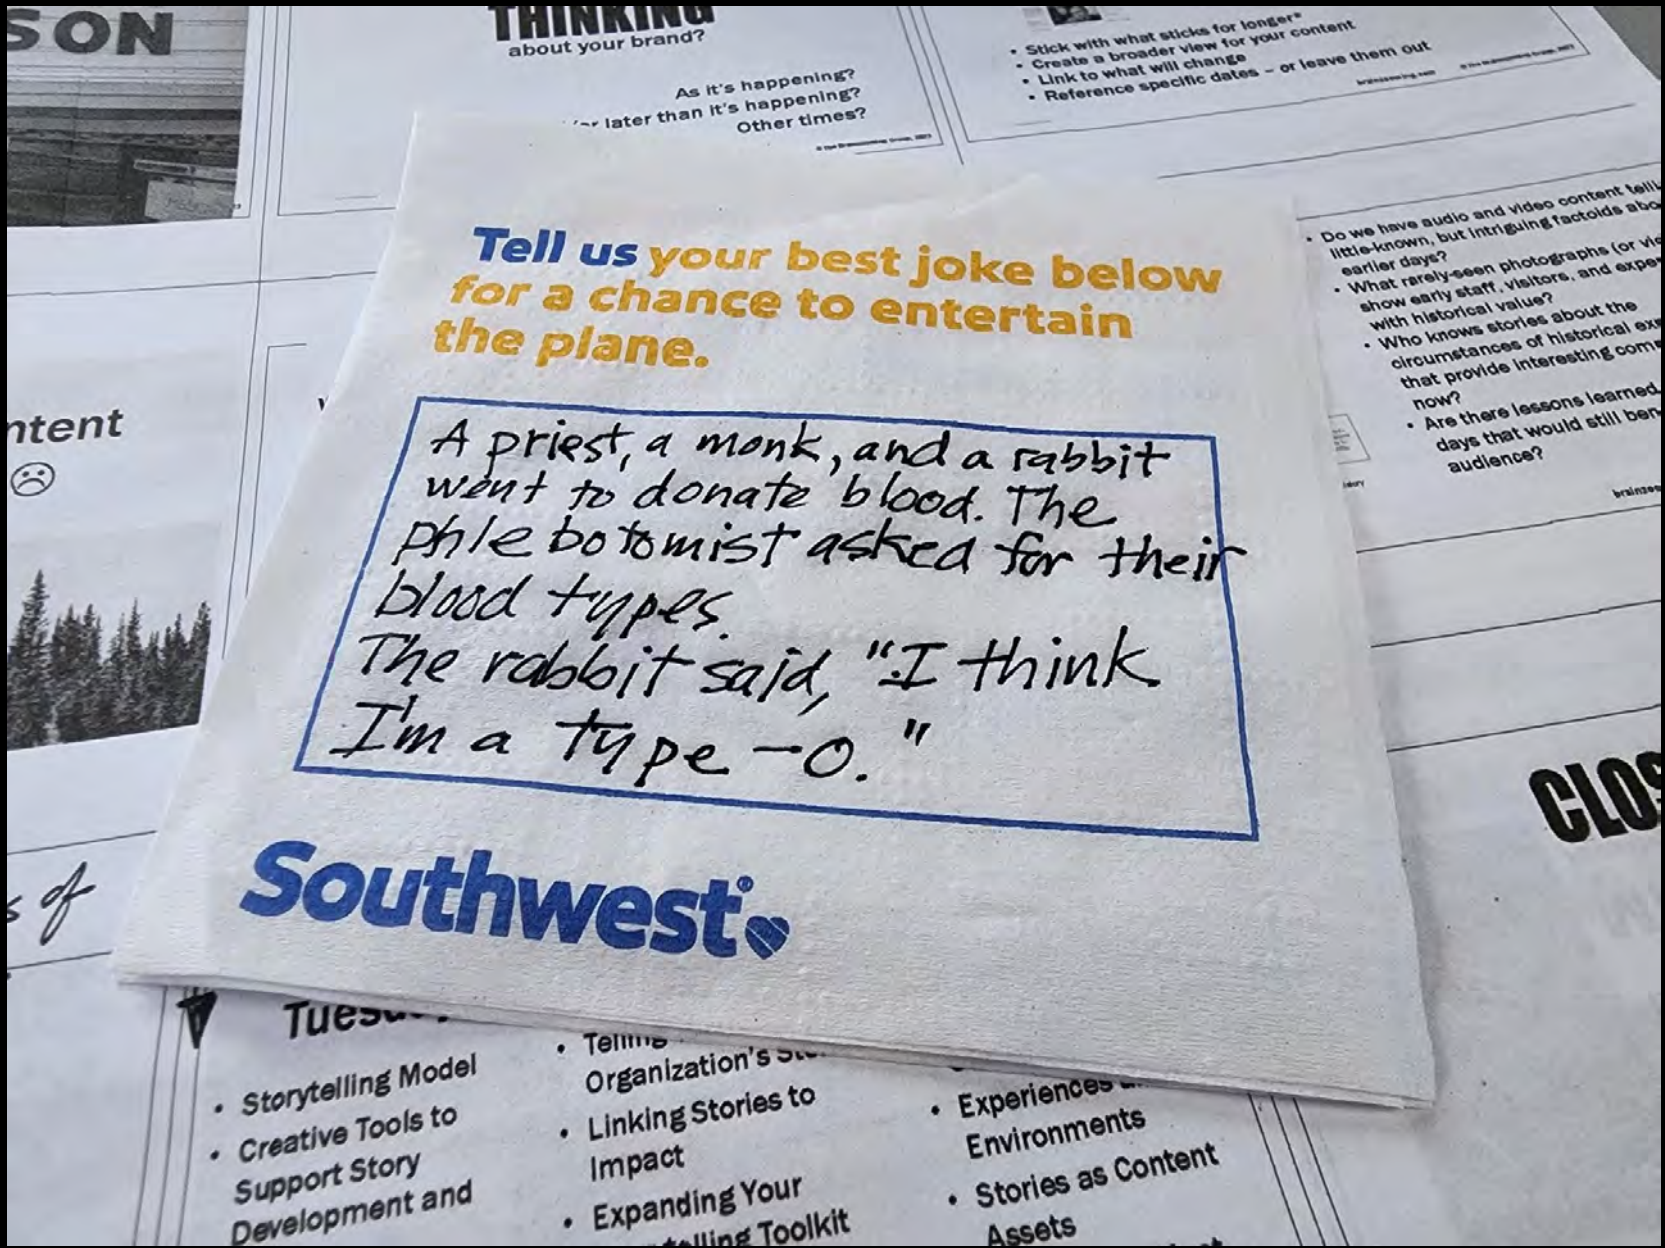 SON
THINKING
about your brand?
As it's happening?
later than it's happening?
Other times?
• Stick with what sticks for longer*
• Create a broader view for your content
• Link to what will change
• Reference specific dates – or leave them out
brainzooming.com
Tell us your best joke below
for a chance to entertain
the plane.
A priest, a monk, and a rabbit
went to donate blood. The
phlebotomist asked for their
blood types.
The rabbit said, "I think
I'm a type -O."
Southwest
• Do we have audio and video content
little-known, but intriguing factoids
earlier days?
• What rarely-seen photographs (or
show early staff, visitors, and
with historical value?
• Who knows stories about the
circumstances of historical
that provide interesting
now?
• Are there lessons learned
days that would still
audience?
ntent
s of
CLOS
• Storytelling Model
• Creative Tools to
Support Story
Development and
• Telling
Organization's
• Linking Stories to
Impact
• Expanding Your
Toolkit
• Experiences
Environments
• Stories as Content
Assets